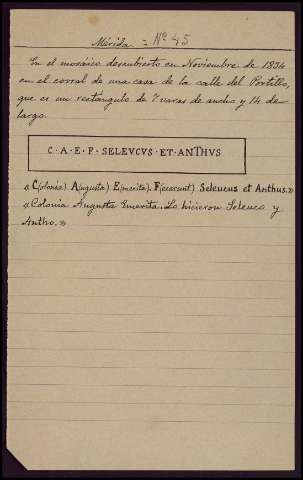 Mérida = Nº 45
En el mosáico descubierto en Noviembre de 1834
en el corral de una casa de la calle del Portillo,
que es un rectángulo de 7 varas de ancho y 14 de
largo.
C·A·E·F·SELEVCVS·ET·ANTHVS
«C(olonia) A(ugusta) E(merita). F(ecerunt) Seleucus et Anthus.»
«Colonia Augusta Emerita. Lo hicieron Seleuco y
Antho.»